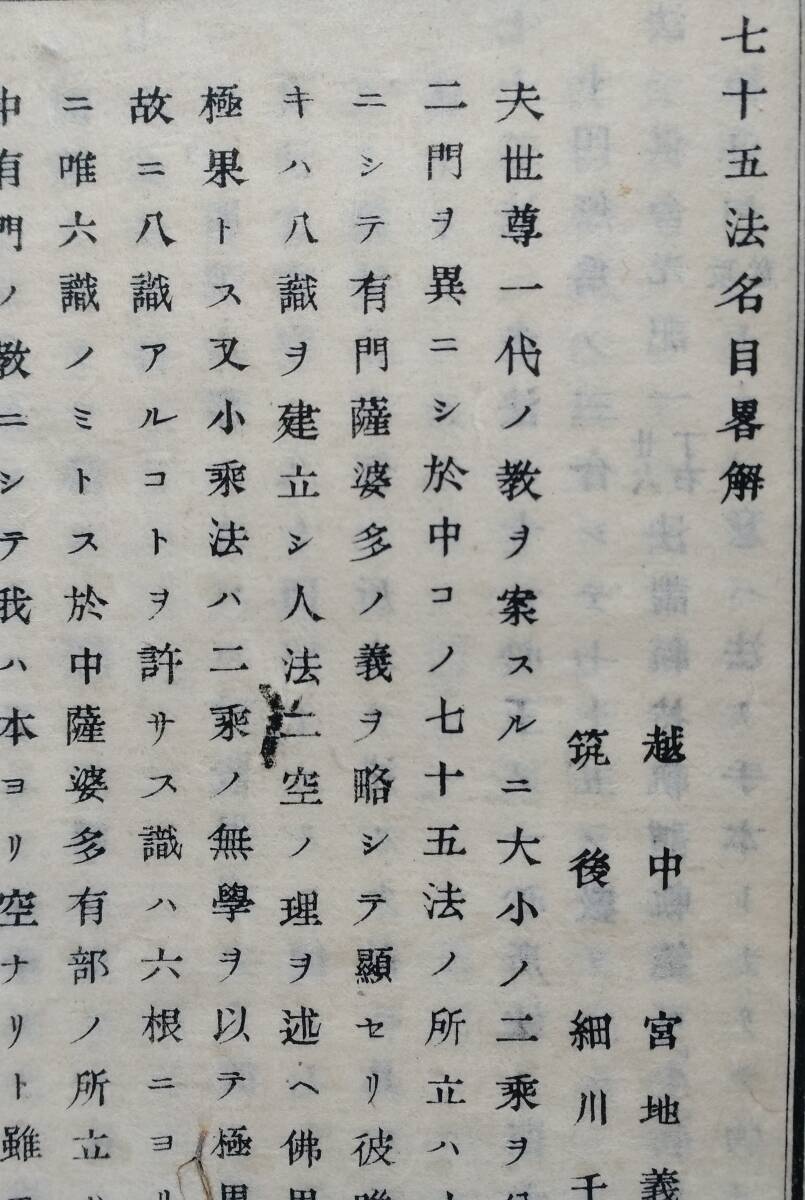 七十五法名目畧解
越中 宮地義
筑後 細川千
夫世尊一代ノ教ヲ案スルニ大小ノ二乘ヲ
二門ヲ異ニシ於中コノ七十五法ノ所立ハ
ニシテ有門薩婆多ノ義ヲ略シテ顯セリ彼
キハ八識ヲ建立シ人法二空ノ理ヲ述ヘ佛
極果トス又小乘法ハ二乘ノ無學ヲ以テ極
故ニ八識アルコトヲ許サス識ハ六根ニヨリ
ニ唯六識ノミトス於中薩婆多有部ノ所立
中有門ノ教ニシテ我ハ本ヨリ空ナリト雖